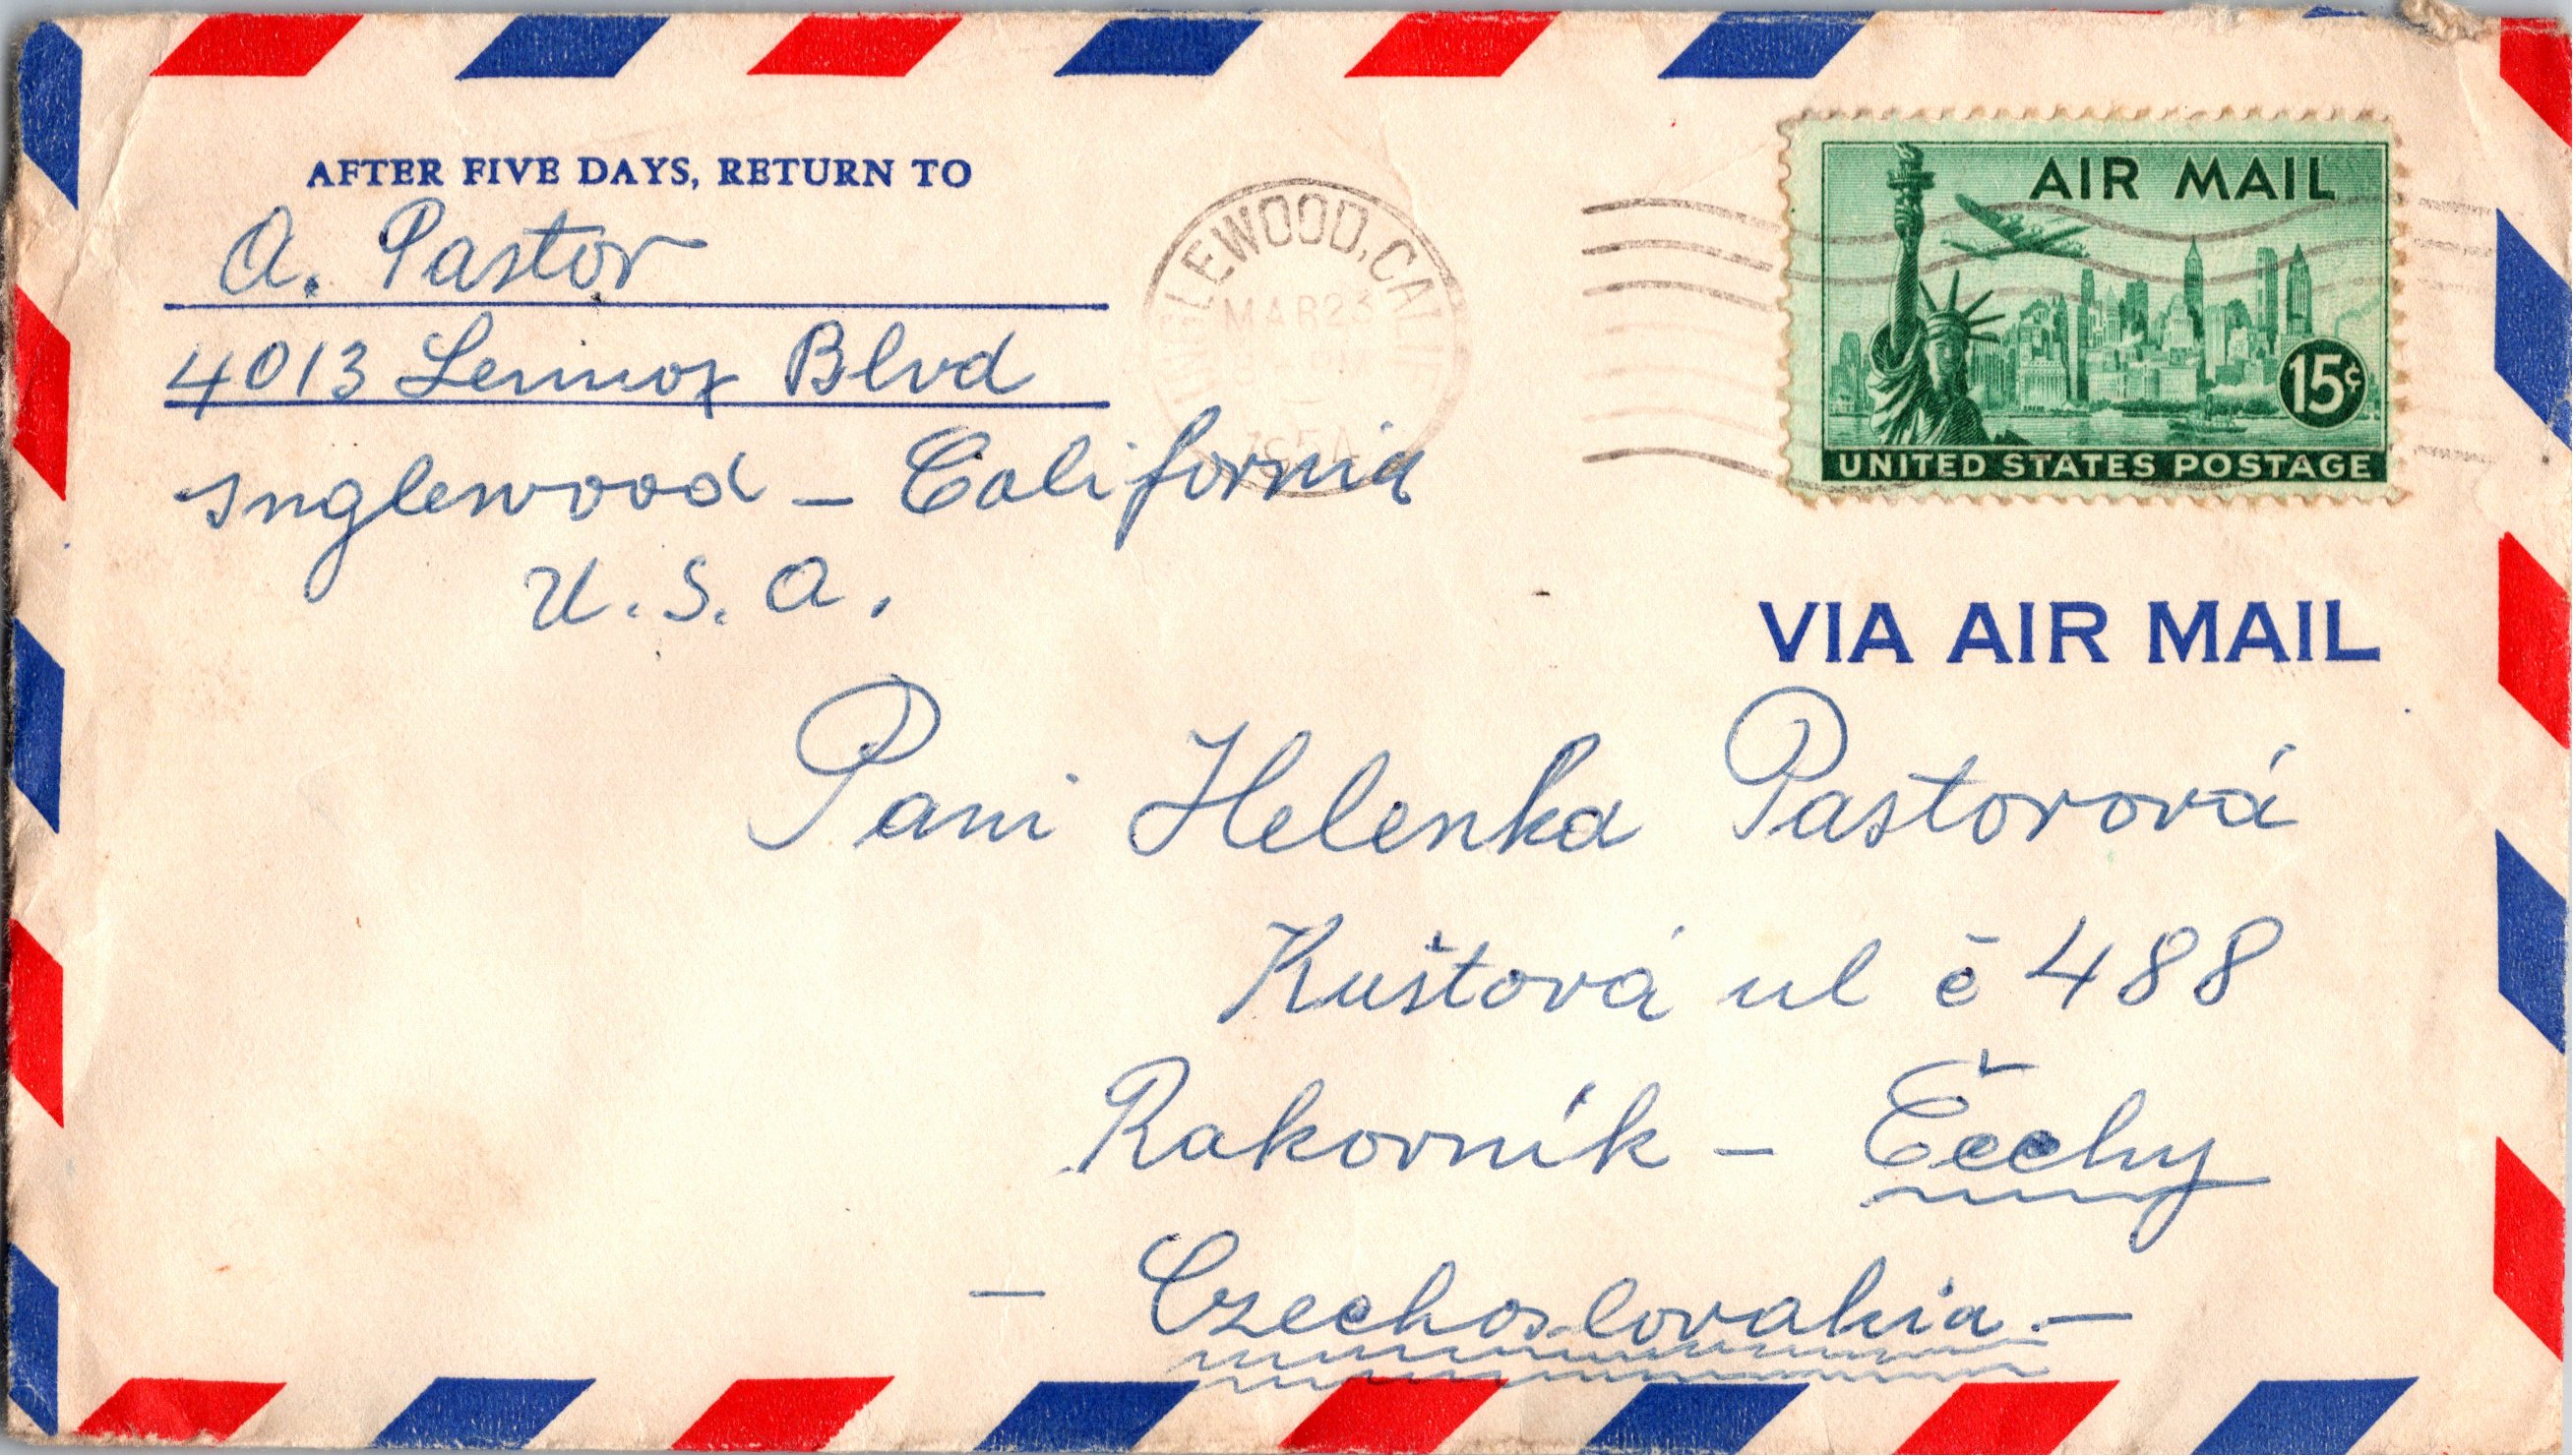 AFTER FIVE DAYS, RETURN TO
A. Pastor
4013 Lennox Blvd
Inglewood – California
U.S.A.
INGLEWOOD, CALIF.
MAR 23
PM
1954
AIR MAIL
15¢
UNITED STATES POSTAGE
VIA AIR MAIL
Pani Helenka Pastorová
Kuštová ul č 488
Rakovník – Čechy
– Czechoslovakia –